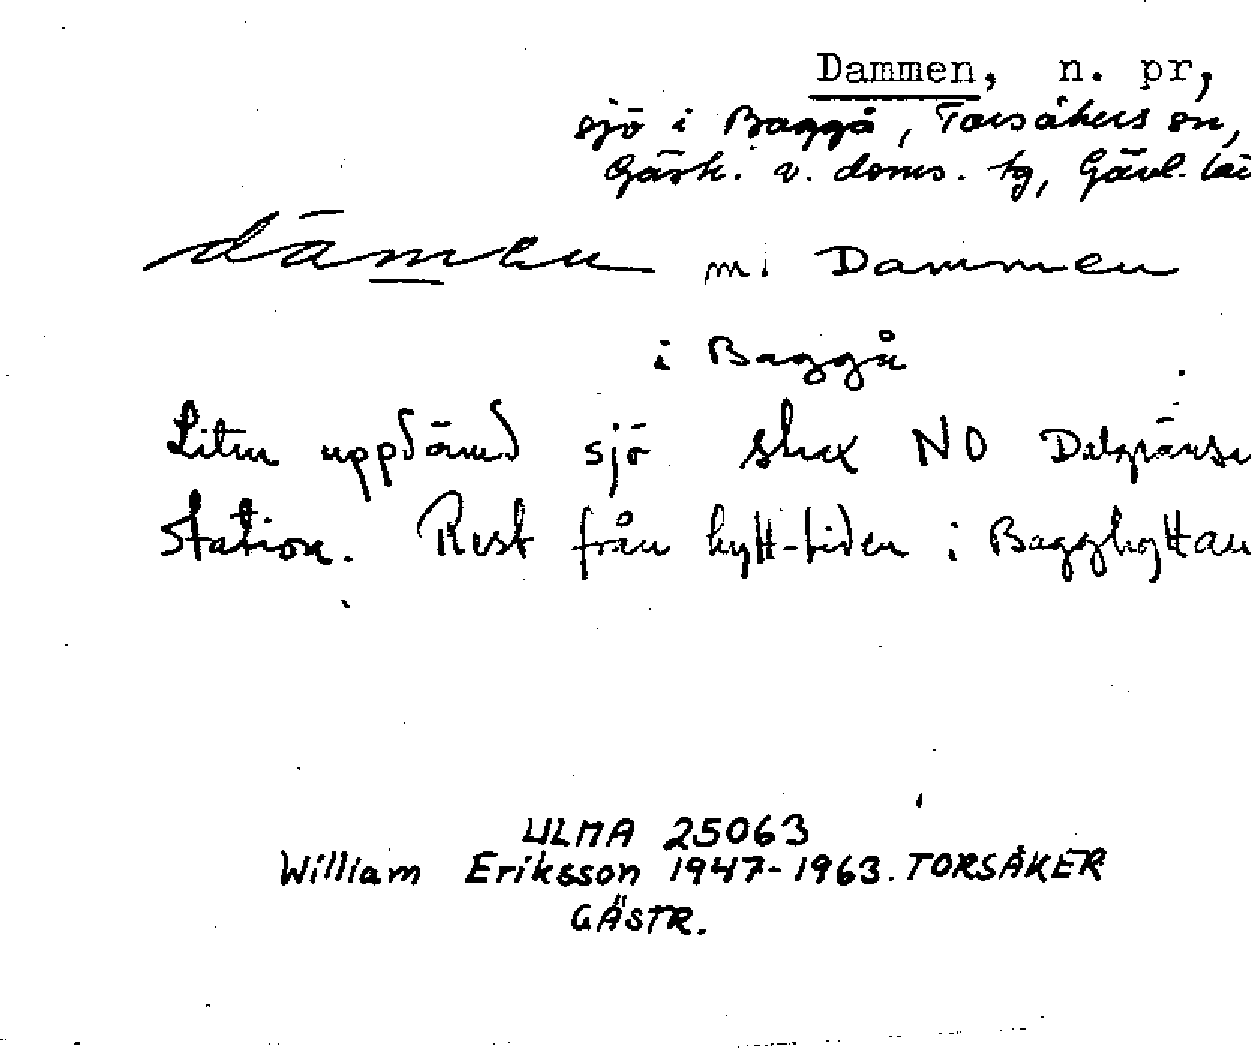 Dammen, n. pr,
sjö i Baggå, Torsåkers sn,
Gästr. v. doms. tg, Gävl. lä
dāmen m. Dammen
i Baggå
Liten uppdämd sjö strax NO Delgräns
station. Rest från hytt-tiden i Bagghyttan
ULMA 25063
William Eriksson 1947-1963. TORSÅKER
GÄSTR.